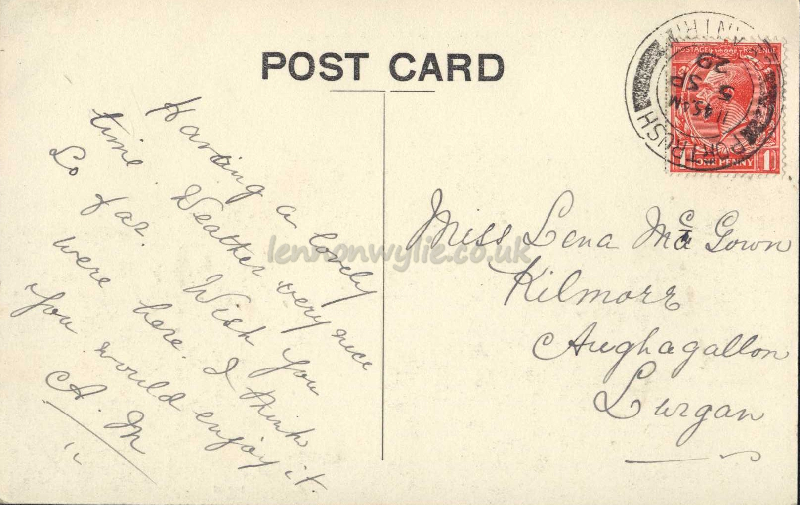 POST CARD
Having a lovely
time. Weather very nice
so far. Wish you
were here. I think
you would enjoy it.
A. M
Miss Lena McGown
Kilmore
Aughagallon
Lurgan
PORTRUSH
11 45 AM
5 SP
20
POSTAGE REVENUE
ONE PENNY 1
lennonwylie.co.uk